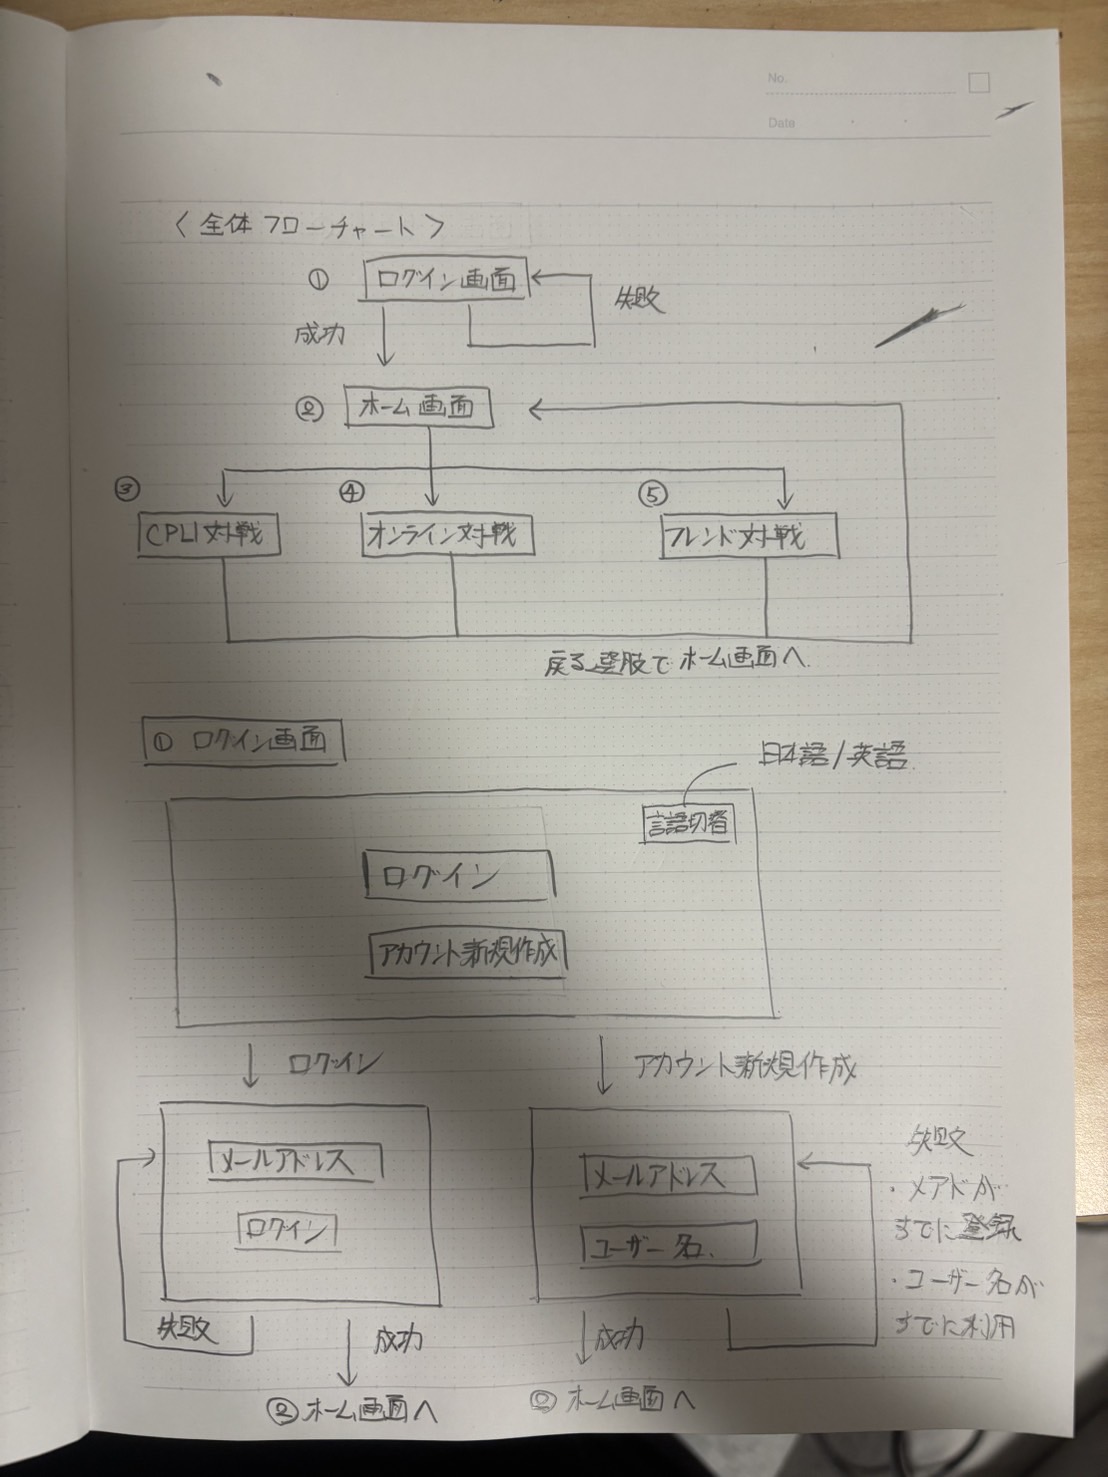 No.
Date
〈全体フローチャート〉
① ログイン画面
失敗
成功
② ホーム画面
③ ④ ⑤
CPU対戦 オンライン対戦 フレンド対戦
戻る選択でホーム画面へ
① ログイン画面
日本語/英語
言語切替
ログイン
アカウント新規作成
ログイン アカウント新規作成
メールアドレス
ログイン
失敗
成功
②ホーム画面へ
メールアドレス
ユーザー名
失敗
・メアドが
すでに登録
・ユーザー名が
すでに利用
成功
②ホーム画面へ